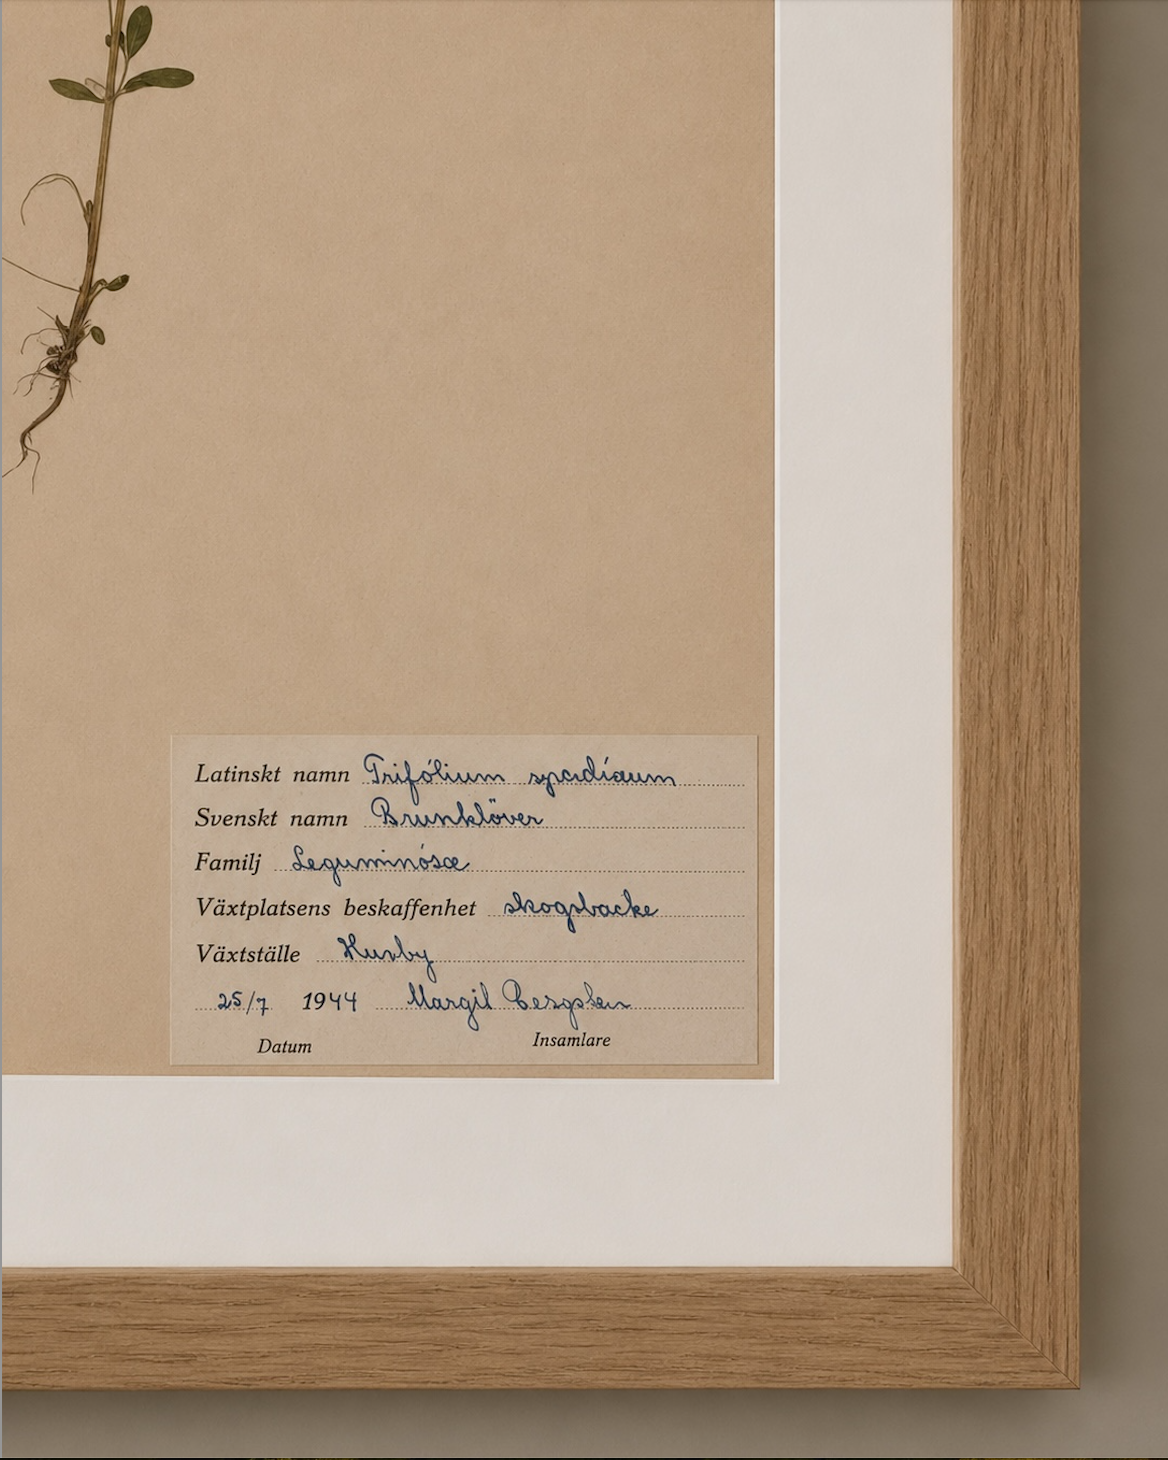 Latinskt namn Trifólium spadíceum
Svenskt namn Brunklöver
Familj Leguminósæ
Växtplatsens beskaffenhet skogsbacke
Växtställe Husby
25/7 1944 Margit Bergsten
Datum Insamlare